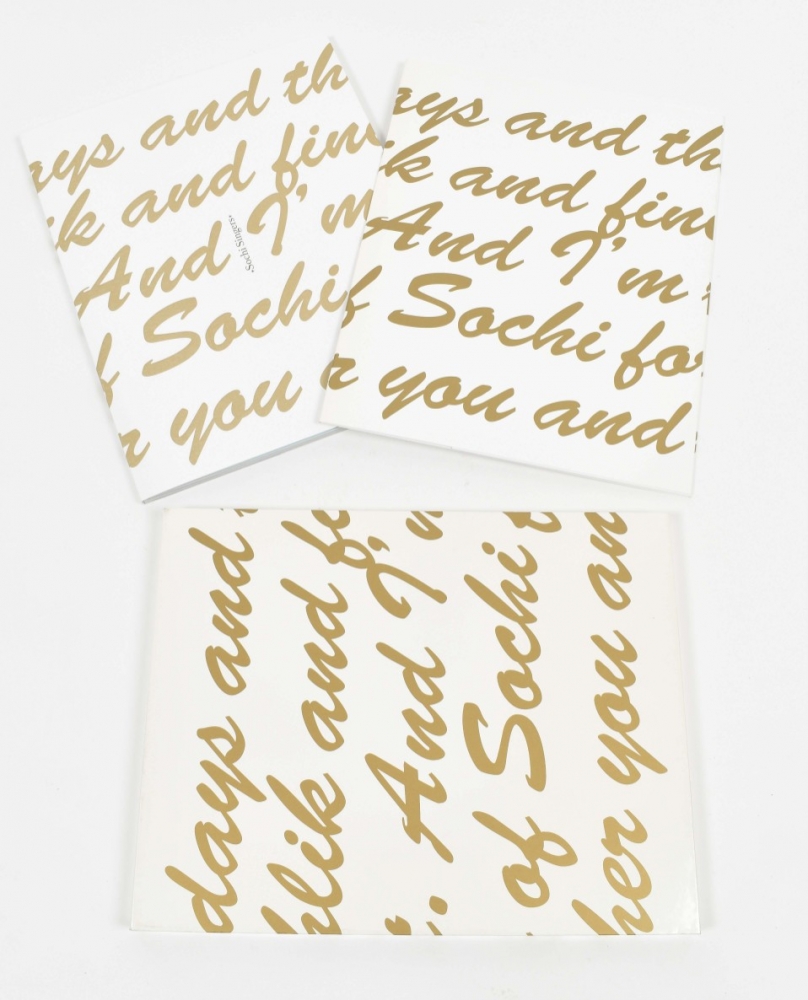 ays and th
k and fin
And I'm
Sochi Singers
f Sochi
r you
ays and th
ik and fin
And I'm
f Sochi fo
r you and
days and
hlik and fi
. And I'm
of Sochi
her you an